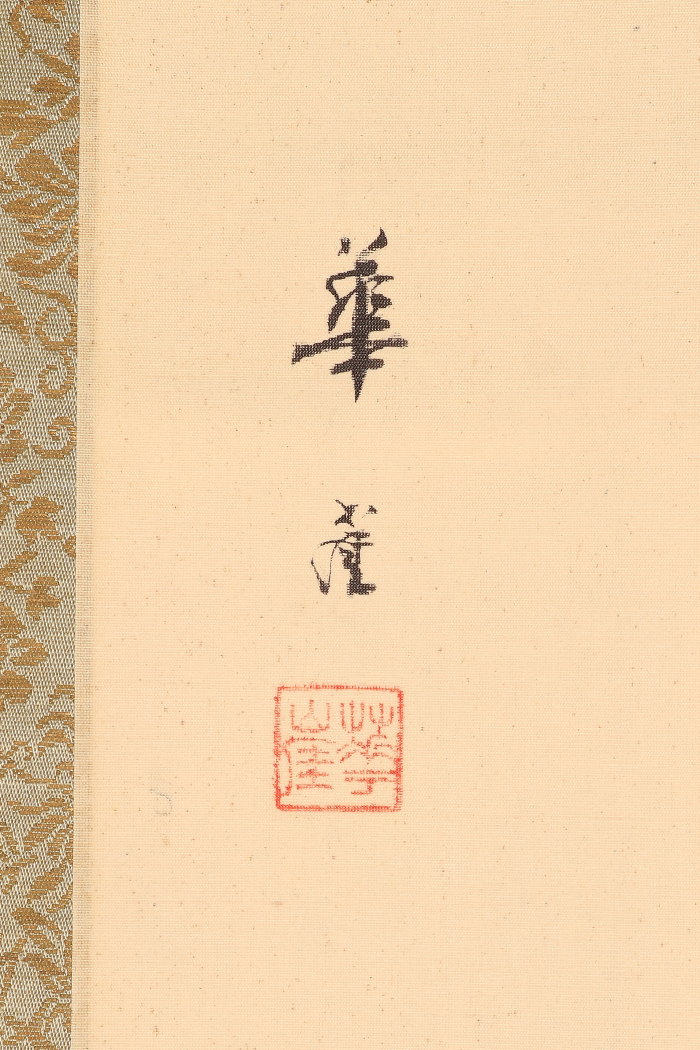 華崖
華崖